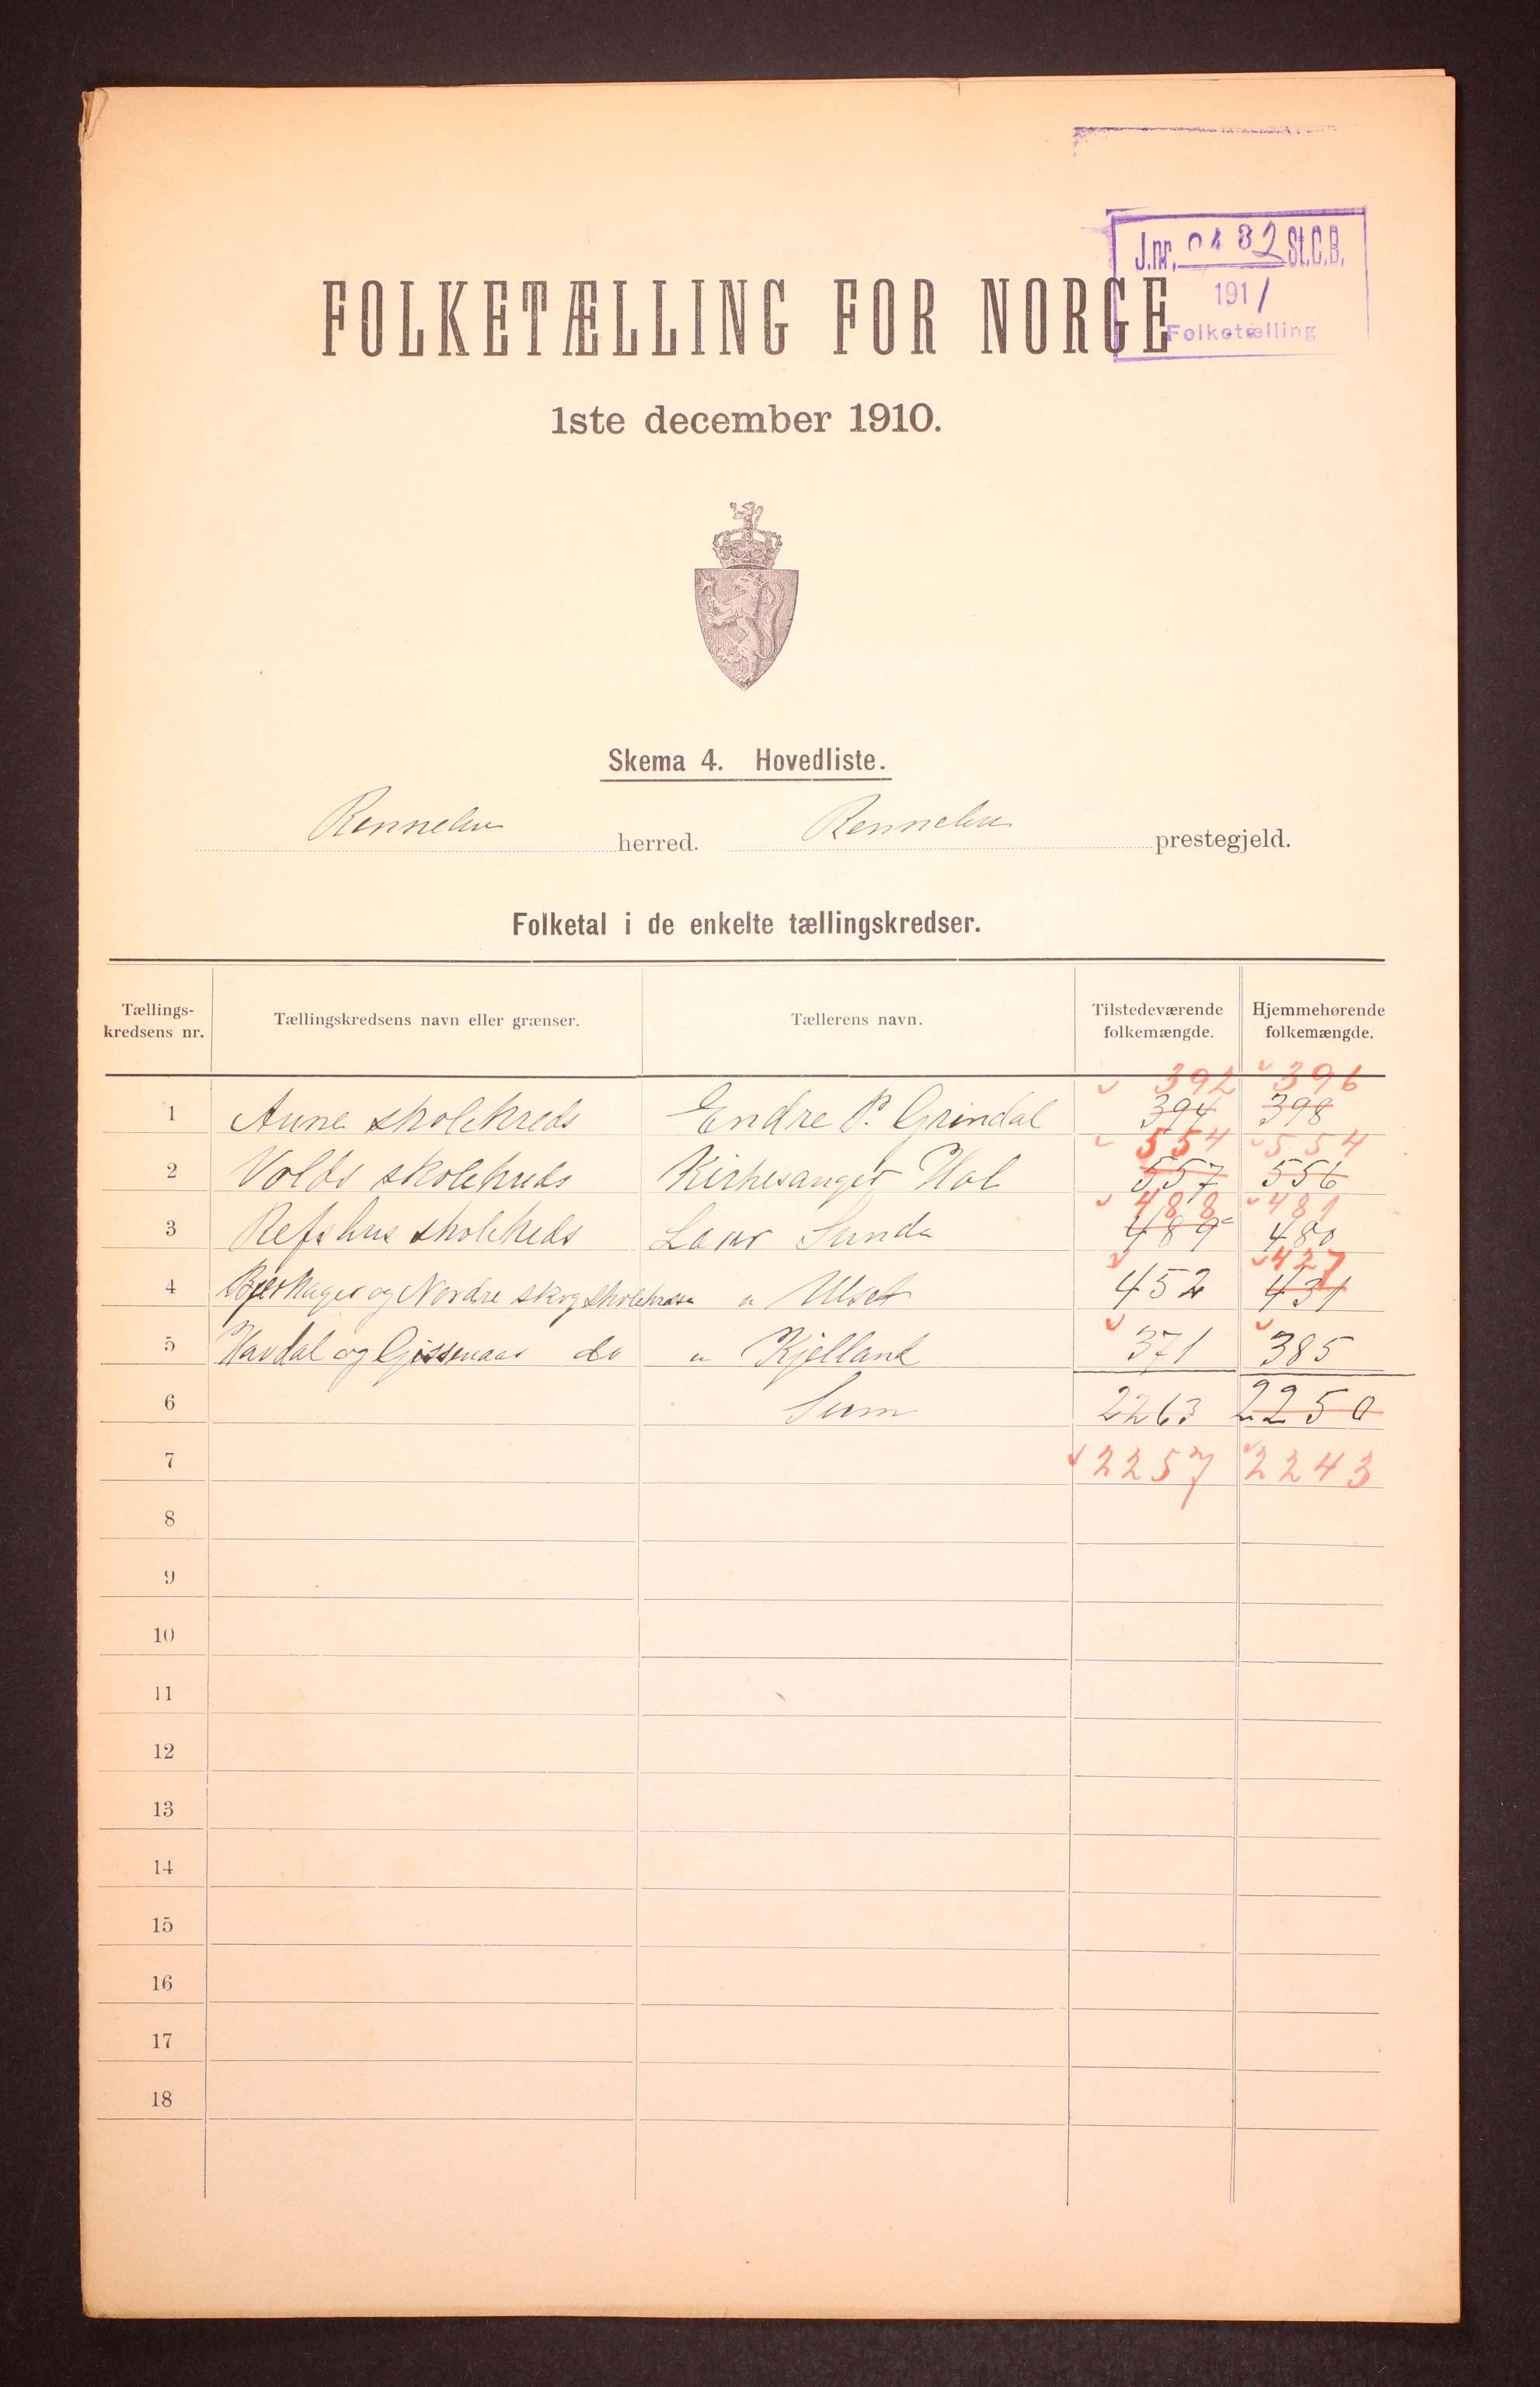 J.nr. 0482 St.C.B.
1911
Folketælling
FOLKETÆLLING FOR NORGE
1ste december 1910.
Skema 4. Hovedliste.
Rennebu herred. Rennebu prestegjeld.
Folketal i de enkelte tællingskredser.
Tællings-kredsens nr. Tællingskredsens navn eller grænser. Tællerens navn. Tilstedeværende folkemængde. Hjemmehørende folkemængde.
392 396
1 Aune skolekreds Endre P. Grindal 394 398
554 554
2 Volds skolekreds Kirkesanger Hol 557 556
488 481
3 Refshus skolekreds Lærer Sunda 489 480
427
4 Bjerkager og Nordre skog skolekredse " Ulset 452 431
5 Havdal og Gissenaas do " Kjelland 371 385
6 Sum 2263 2250
7 2257 2243
8
9
10
11
12
13
14
15
16
17
18